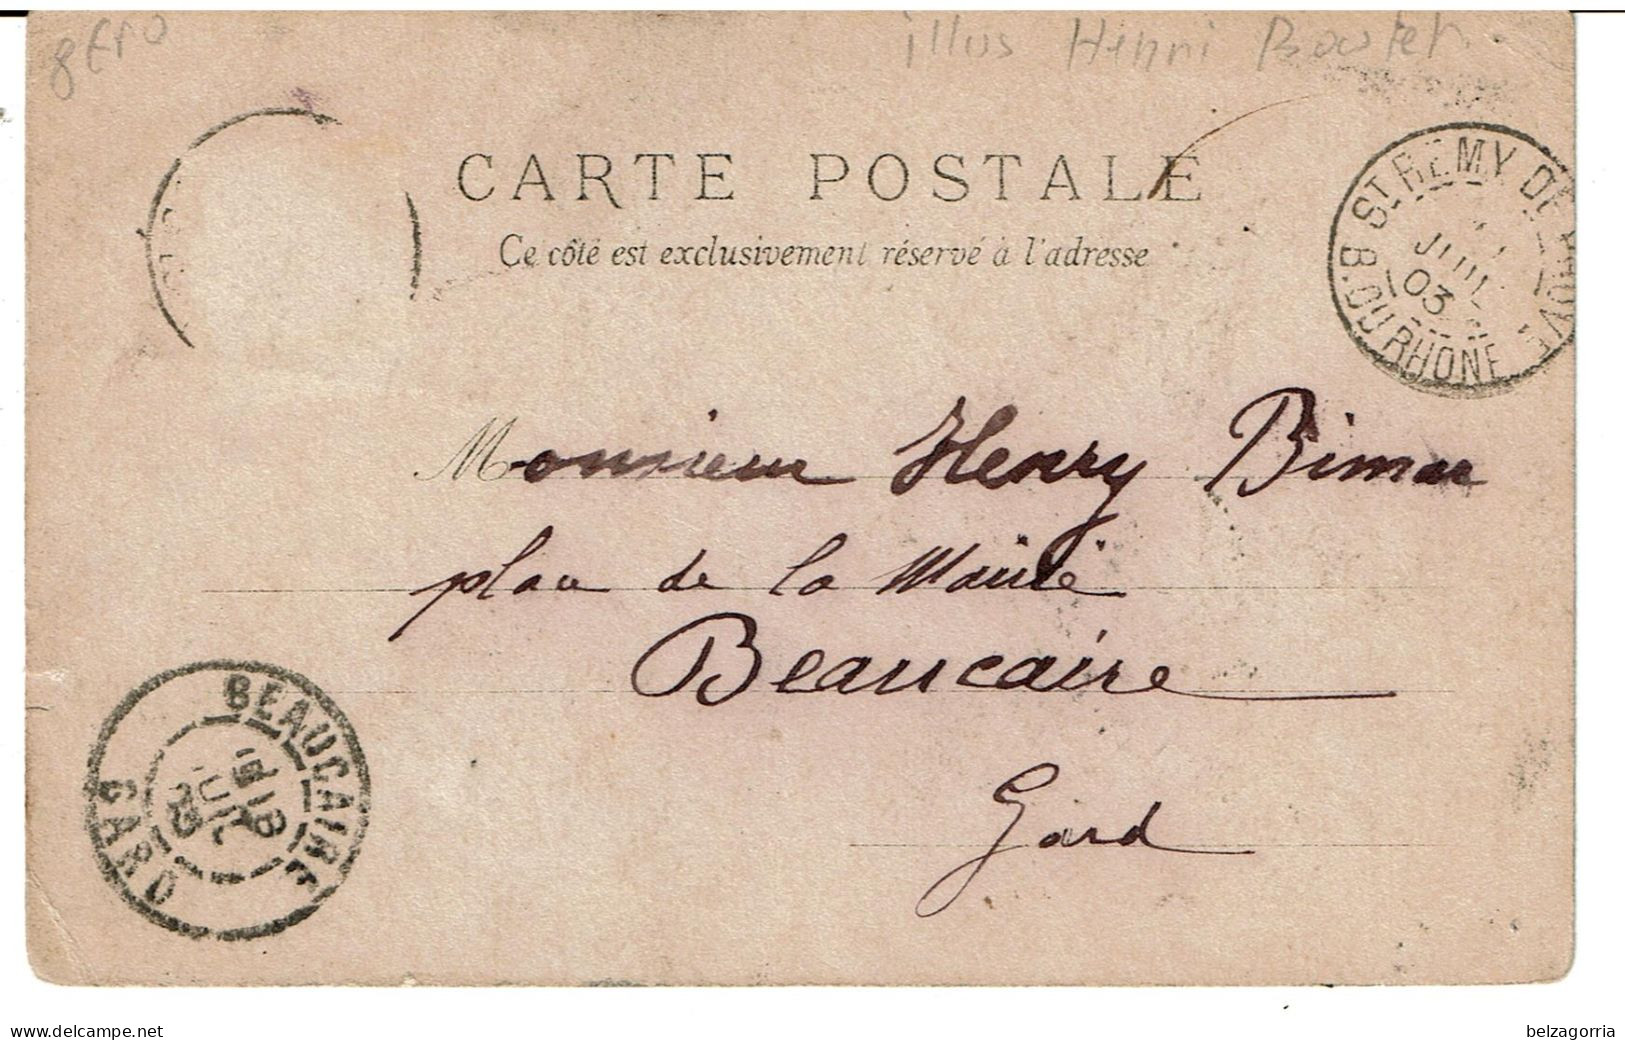 8 Ero
illus Henri Boutet
CARTE POSTALE
Ce côté est exclusivement réservé à l'adresse
ST REMY DE
JUIL
03
B. DU RHONE
Monsieur Henry Bimar
place de la Mairie
Beaucaire
Gard
BEAUCAIRE
JUIL
03
GARD
www.delcampe.net
belzagorria